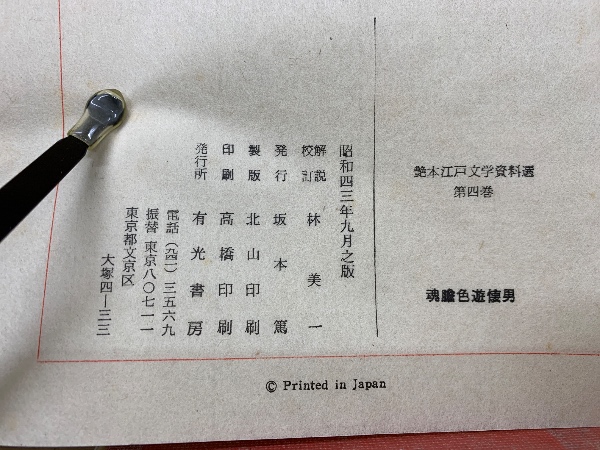 艶本江戸文学資料選
第四巻
魂膽色遊懐男
昭和四三年九月之版
解説
校訂 林美一
発行 坂本篤
製版 北山印刷
印刷 高橋印刷
発行所 有光書房
電話（九四一）三五六九
振替 東京八〇七一一
東京都文京区
大塚四―三三
© Printed in Japan